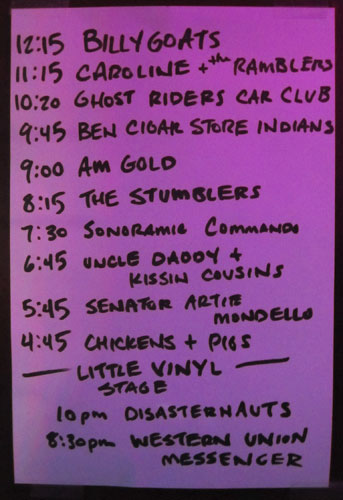 12:15 BILLYGOATS
11:15 CAROLINE + the RAMBLERS
10:20 GHOST RIDERS CAR CLUB
9:45 BEN CIGAR STORE INDIANS
9:00 AM GOLD
8:15 THE STUMBLERS
7:30 SONORAMIC COMMANDO
6:45 UNCLE DADDY +
KISSIN COUSINS
5:45 SENATOR ARTIE
MONDELLO
4:45 CHICKENS + PIGS
— LITTLE VINYL —
STAGE
10pm DISASTERNAUTS
8:30pm WESTERN UNION
MESSENGER